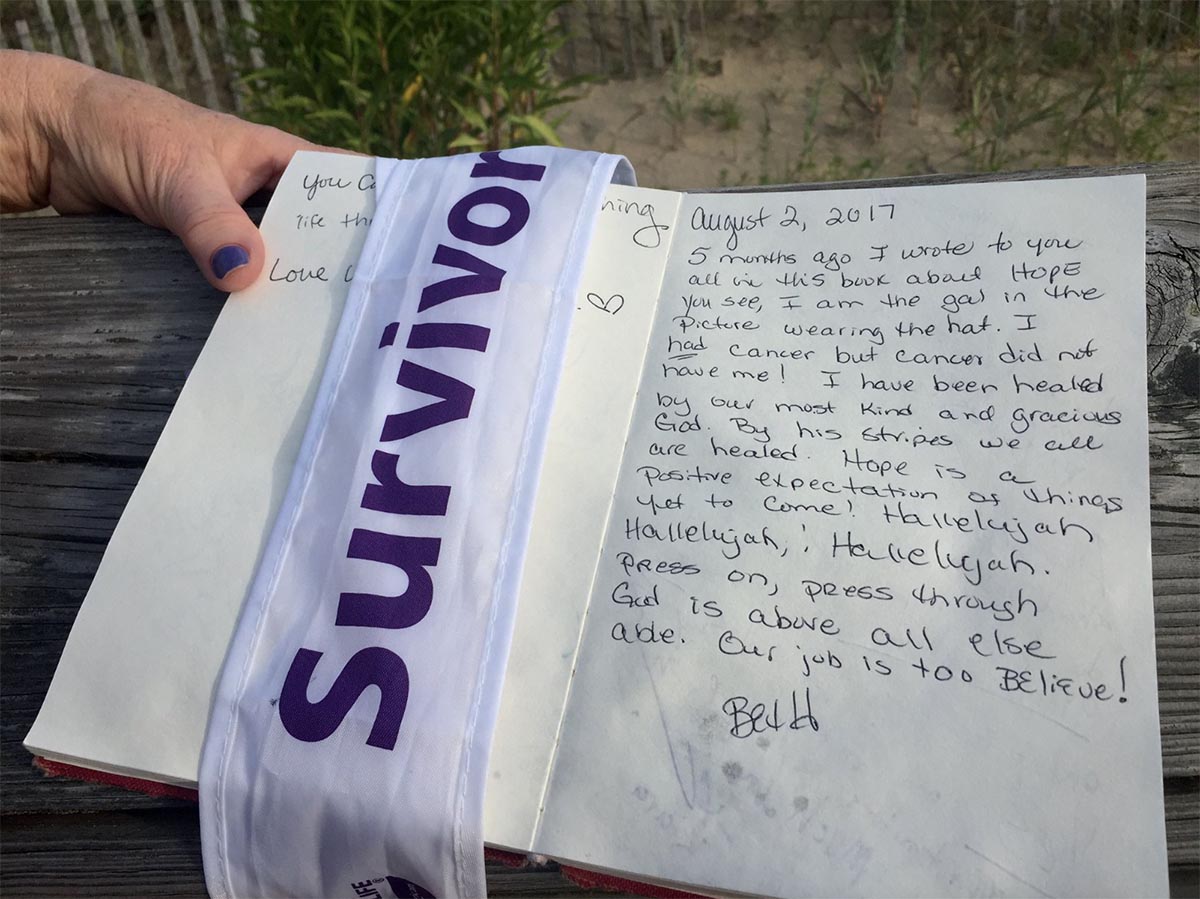 You
life
Love
hing
Survivor
LIFE®
August 2, 2017
5 months ago I wrote to you
all in this book about HOPE
you see, I am the gal in the
Picture wearing the hat. I
had cancer but cancer did not
have me! I have been healed
by our most kind and gracious
God. By his stripes we all
are healed. Hope is a
Positive expectation of things
yet to come! Hallelujah
Hallelujah, ! Hallelujah.
Press on, press through
God is above all else
able. Our job is too BElieve!
Beth